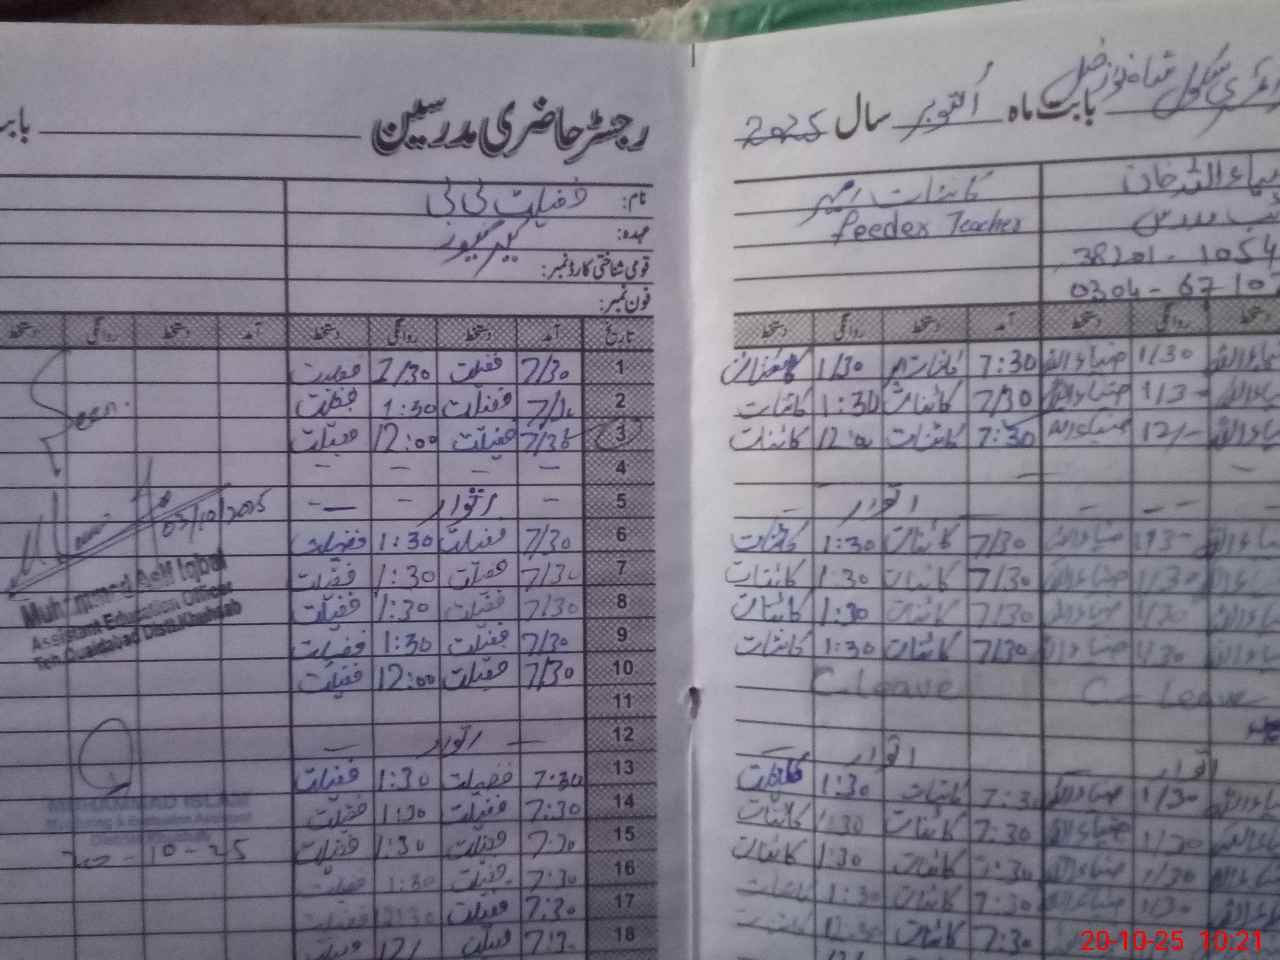 رجسٹر حاضری مدرسین
بابت ماہ اکتوبر سال 2025
نام: فضیلت بی بی
عہدہ: کیئر گیور
قومی شناختی کارڈ نمبر:
فون نمبر:
کائنات
Feeder Teacher
ضیاء اللہ خان
38201-1054
0304-6710
تاریخ آمد دستخط روانگی دستخط آمد دستخط روانگی دستخط
آمد دستخط روانگی دستخط روانگی دستخط
1 7/30 فضیلت 1/30 فضیلت
2 فضیلت 1:30 فضیلت
3 7/30 فضیلت 12:00 فضیلت
4 — — — —
5 — اتوار — —
6 7/30 فضیلت 1:30 فضیلت
7 7/30 فضیلت 1:30 فضیلت
8 7/30 فضیلت 1:30 فضیلت
9 7/30 فضیلت 1:30 فضیلت
10 7/30 فضیلت 12:00 فضیلت
11
12 — اتوار —
13 7:30 فضیلت 1:30 فضیلت
14 7:30 فضیلت 1:30 فضیلت
15 7:30 فضیلت 1:30 فضیلت
16 7:30 فضیلت 1:30 فضیلت
17 7:30 فضیلت 12:30 فضیلت
18 فضیلت
ضیاء اللہ 1/30 ضیاء اللہ 7:30 کائنات 1/30 کائنات
ضیاء اللہ 7/30 کائنات 1:30 کائنات
ضیاء اللہ 12/- ضیاء اللہ 7:30 کائنات 12:00 کائنات
اتوار
ضیاء اللہ 7/30 کائنات 1:30 کائنات
ضیاء اللہ 1/30 ضیاء اللہ 7/30 کائنات 1:30 کائنات
ضیاء اللہ 1/30 ضیاء اللہ 7/30 کائنات 1:30 کائنات
ضیاء اللہ 1/30 ضیاء اللہ 7/30 کائنات 1:30 کائنات
C-Leave C-Leave
اتوار اتوار
ضیاء اللہ 1/30 ضیاء اللہ 7:30 کائنات 1:30 کائنات
ضیاء اللہ 1/30 ضیاء اللہ 7:30 کائنات 1:30 کائنات
ضیاء اللہ 1/30 ضیاء اللہ 7:30 کائنات 1:30 کائنات
ضیاء اللہ 1/30 ضیاء اللہ 7:30 کائنات 1:30 کائنات
ضیاء اللہ 7:30 کائنات 12:30 کائنات
Seen.
03/10/2025
Muhammad Asif Iqbal
Assistant Education Officer
Teh. Quaidabad Distt. Khushab
MUHAMMAD ISLAM
Monitoring & Evaluation Assistant
District Khushab
20-10-25
20-10-25 10:21